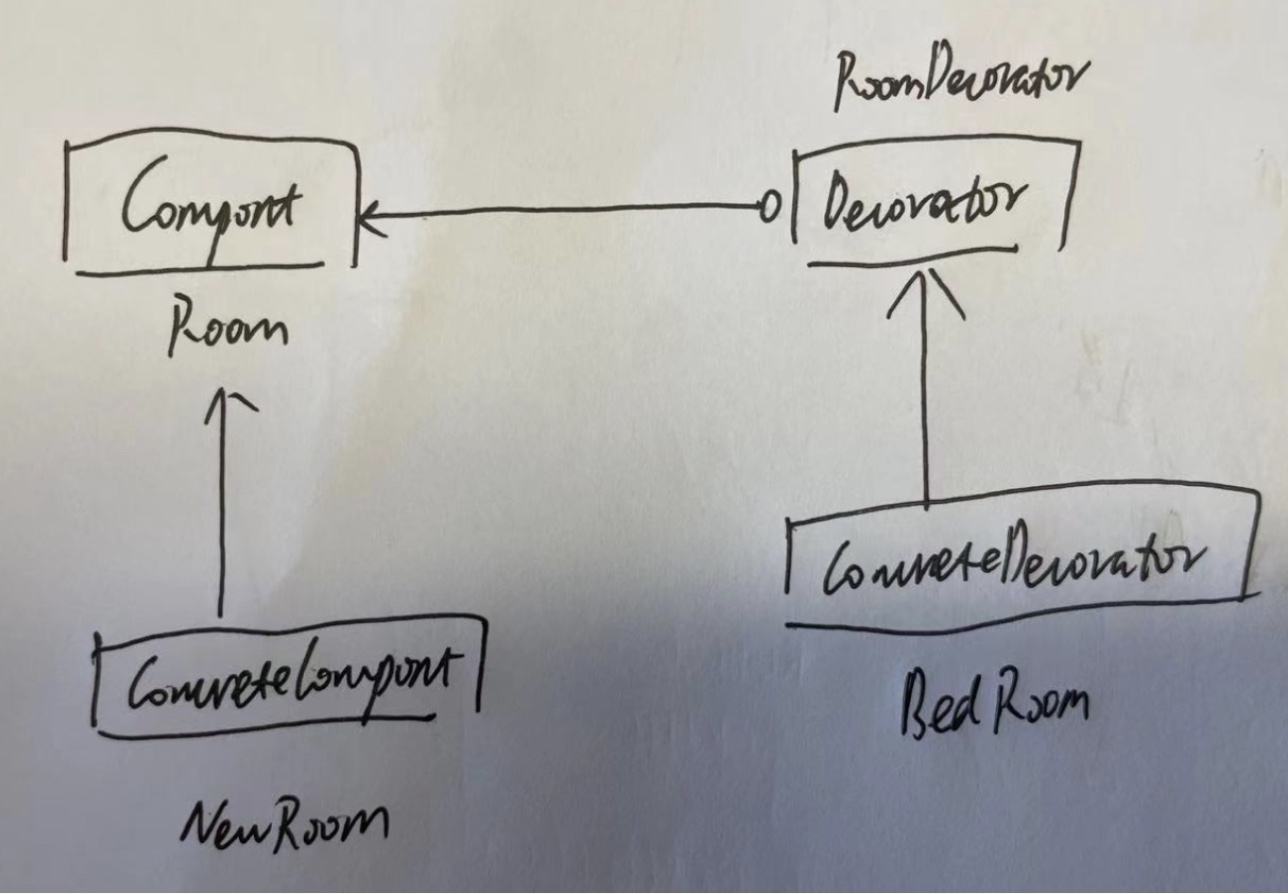 RoomDecorator
Compont
Decorator
Room
ConcreteDecorator
ConcreteCompont
Bed Room
NewRoom